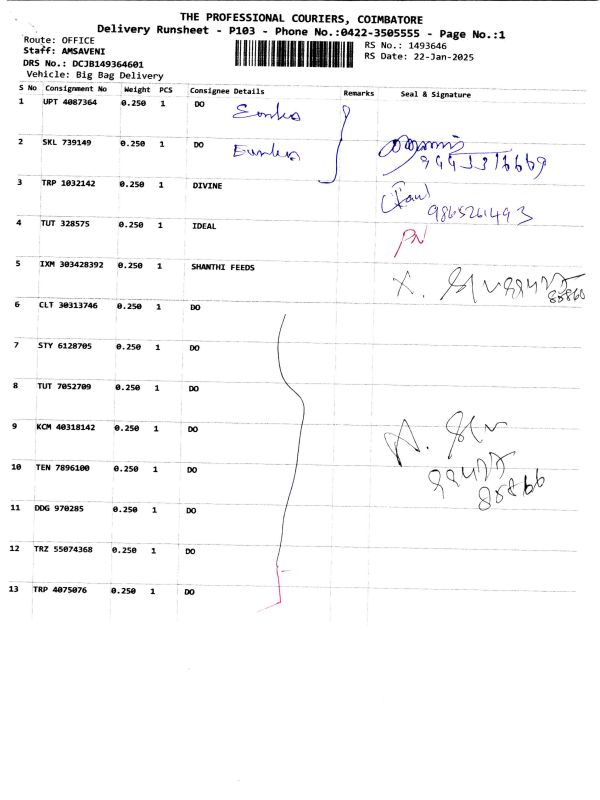 THE PROFESSIONAL COURIERS, COIMBATORE
Delivery Runsheet - P103 - Phone No.:0422-3505555 - Page No.:1
Route: OFFICE
RS No.: 1493646
Staff: AMSAVENI
RS Date: 22-Jan-2025
DRS No.: DCJB149364601
Vehicle: Big Bag Delivery
S No Consignment No Weight PCS Consignee Details Remarks Seal & Signature
1 UPT 4087364 0.250 1 DO
2 SKL 739149 0.250 1 DO
3 TRP 1032142 0.250 1 DIVINE
9865261493
4 TUT 328575 0.250 1 IDEAL
PN
5 IXM 303428392 0.250 1 SHANTHI FEEDS
6 CLT 30313746 0.250 1 DO
7 STY 6128705 0.250 1 DO
8 TUT 7052709 0.250 1 DO
9 KCM 40318142 0.250 1 DO
10 TEN 7896100 0.250 1 DO
11 DDG 970285 0.250 1 DO
12 TRZ 55074368 0.250 1 DO
13 TRP 4075076 0.250 1 DO